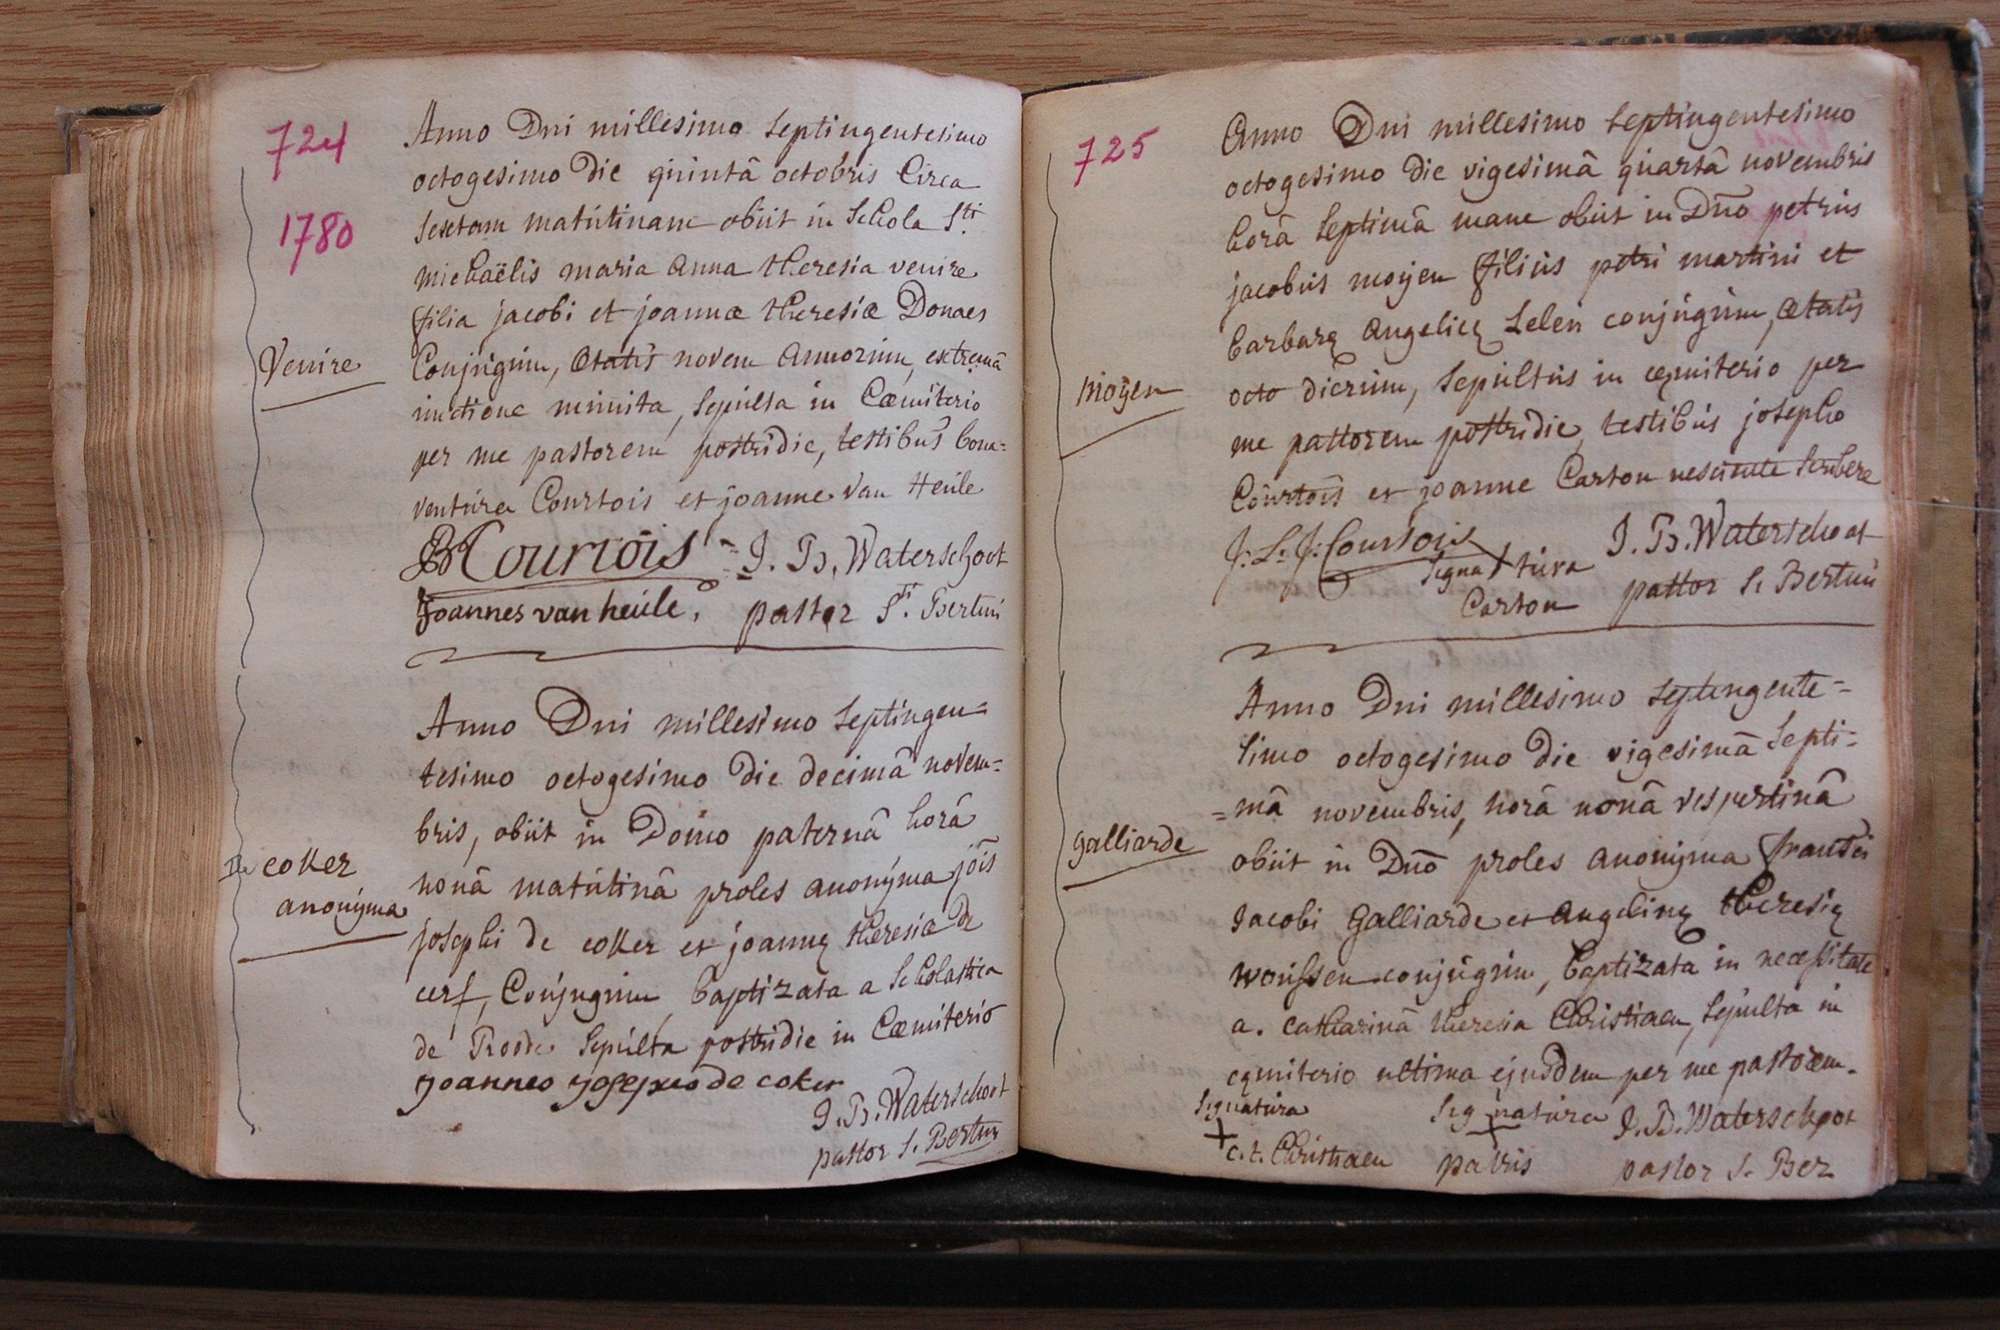 724
1780
Anno Dni millesimo septingentesimo
octogesimo die quintâ octobris circa
sextam matutinam obiit in schola Sti
michaëlis maria anna theresia venire
filia jacobi et joannæ theresiæ Donaes
Venire
Conjugum, ætatis novem annorum, extremâ
unctione munita, sepulta in Cœmiterio
per me pastorem postridie, testibus bona=
ventura Courtois et joanne van Heule
B Courtois = J. B. Waterschoot
Joannes van heule. pastor Sti. Bertini
Anno Dni millesimo septingen=
tesimo octogesimo die decimâ novem=
bris, obiit in Domo paternâ horâ
De coker
anonyma
nonâ matutinâ proles anonyma jois
josephi de coker et joannę theresiæ de
cerf, Conjugum, baptizata a scholastica
de Roode sepulta postridie in Cœmiterio
joannes josephus de coker
J. B. Waterschoot
pastor S. Bertin
725
Anno Dni millesimo septingentesimo
octogesimo die vigesimâ quartâ novembris
horâ septimâ mane obiit in Dno petrus
jacobus moyen filius petri martini et
barbarę angelicę Lelen conjugum, ætatis
moyen
octo dierum, sepultus in cęmiterio per
me pastorem postridie, testibus josepho
Courtois et joanne Carton nesciente scribere
J: L: J: Courtois
signa X tura
Carton
J. B. Waterschoot
pastor S. Bertini
Anno Dni millesimo septingente=
simo octogesimo die vigesimâ septi=
=mâ novembris, horâ nonâ vespertinâ
galliarde
obiit in Dno proles anonyma francisci
Jacobi galliarde et angelinę theresię
woussen conjugum, baptizata in necessitate
a. catharinâ theresia Christiaen, sepulta in
cęmiterio ultima ejusdem per me pastorem.
signatura
+
c. t. Christiaen
signatura
+
patris
J. B. Waterschoot
pastor S. Ber